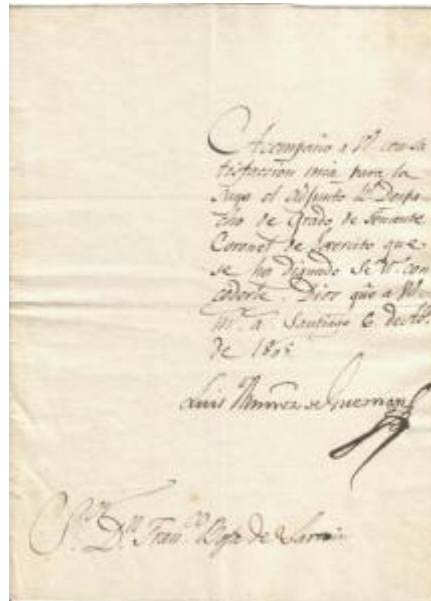 Acompaño a V. con sa
tisfaccion mia para la
suya el adjunto Rl. Despa
cho de Grado de Teniente
Coronel de Exercito que
se ha dignado S. M. con
cederle. Dios gue. a V.
ms. as. Santiago 6 de
de
Luis Muñoz de Guzman
Sor. Dn. Franco. de